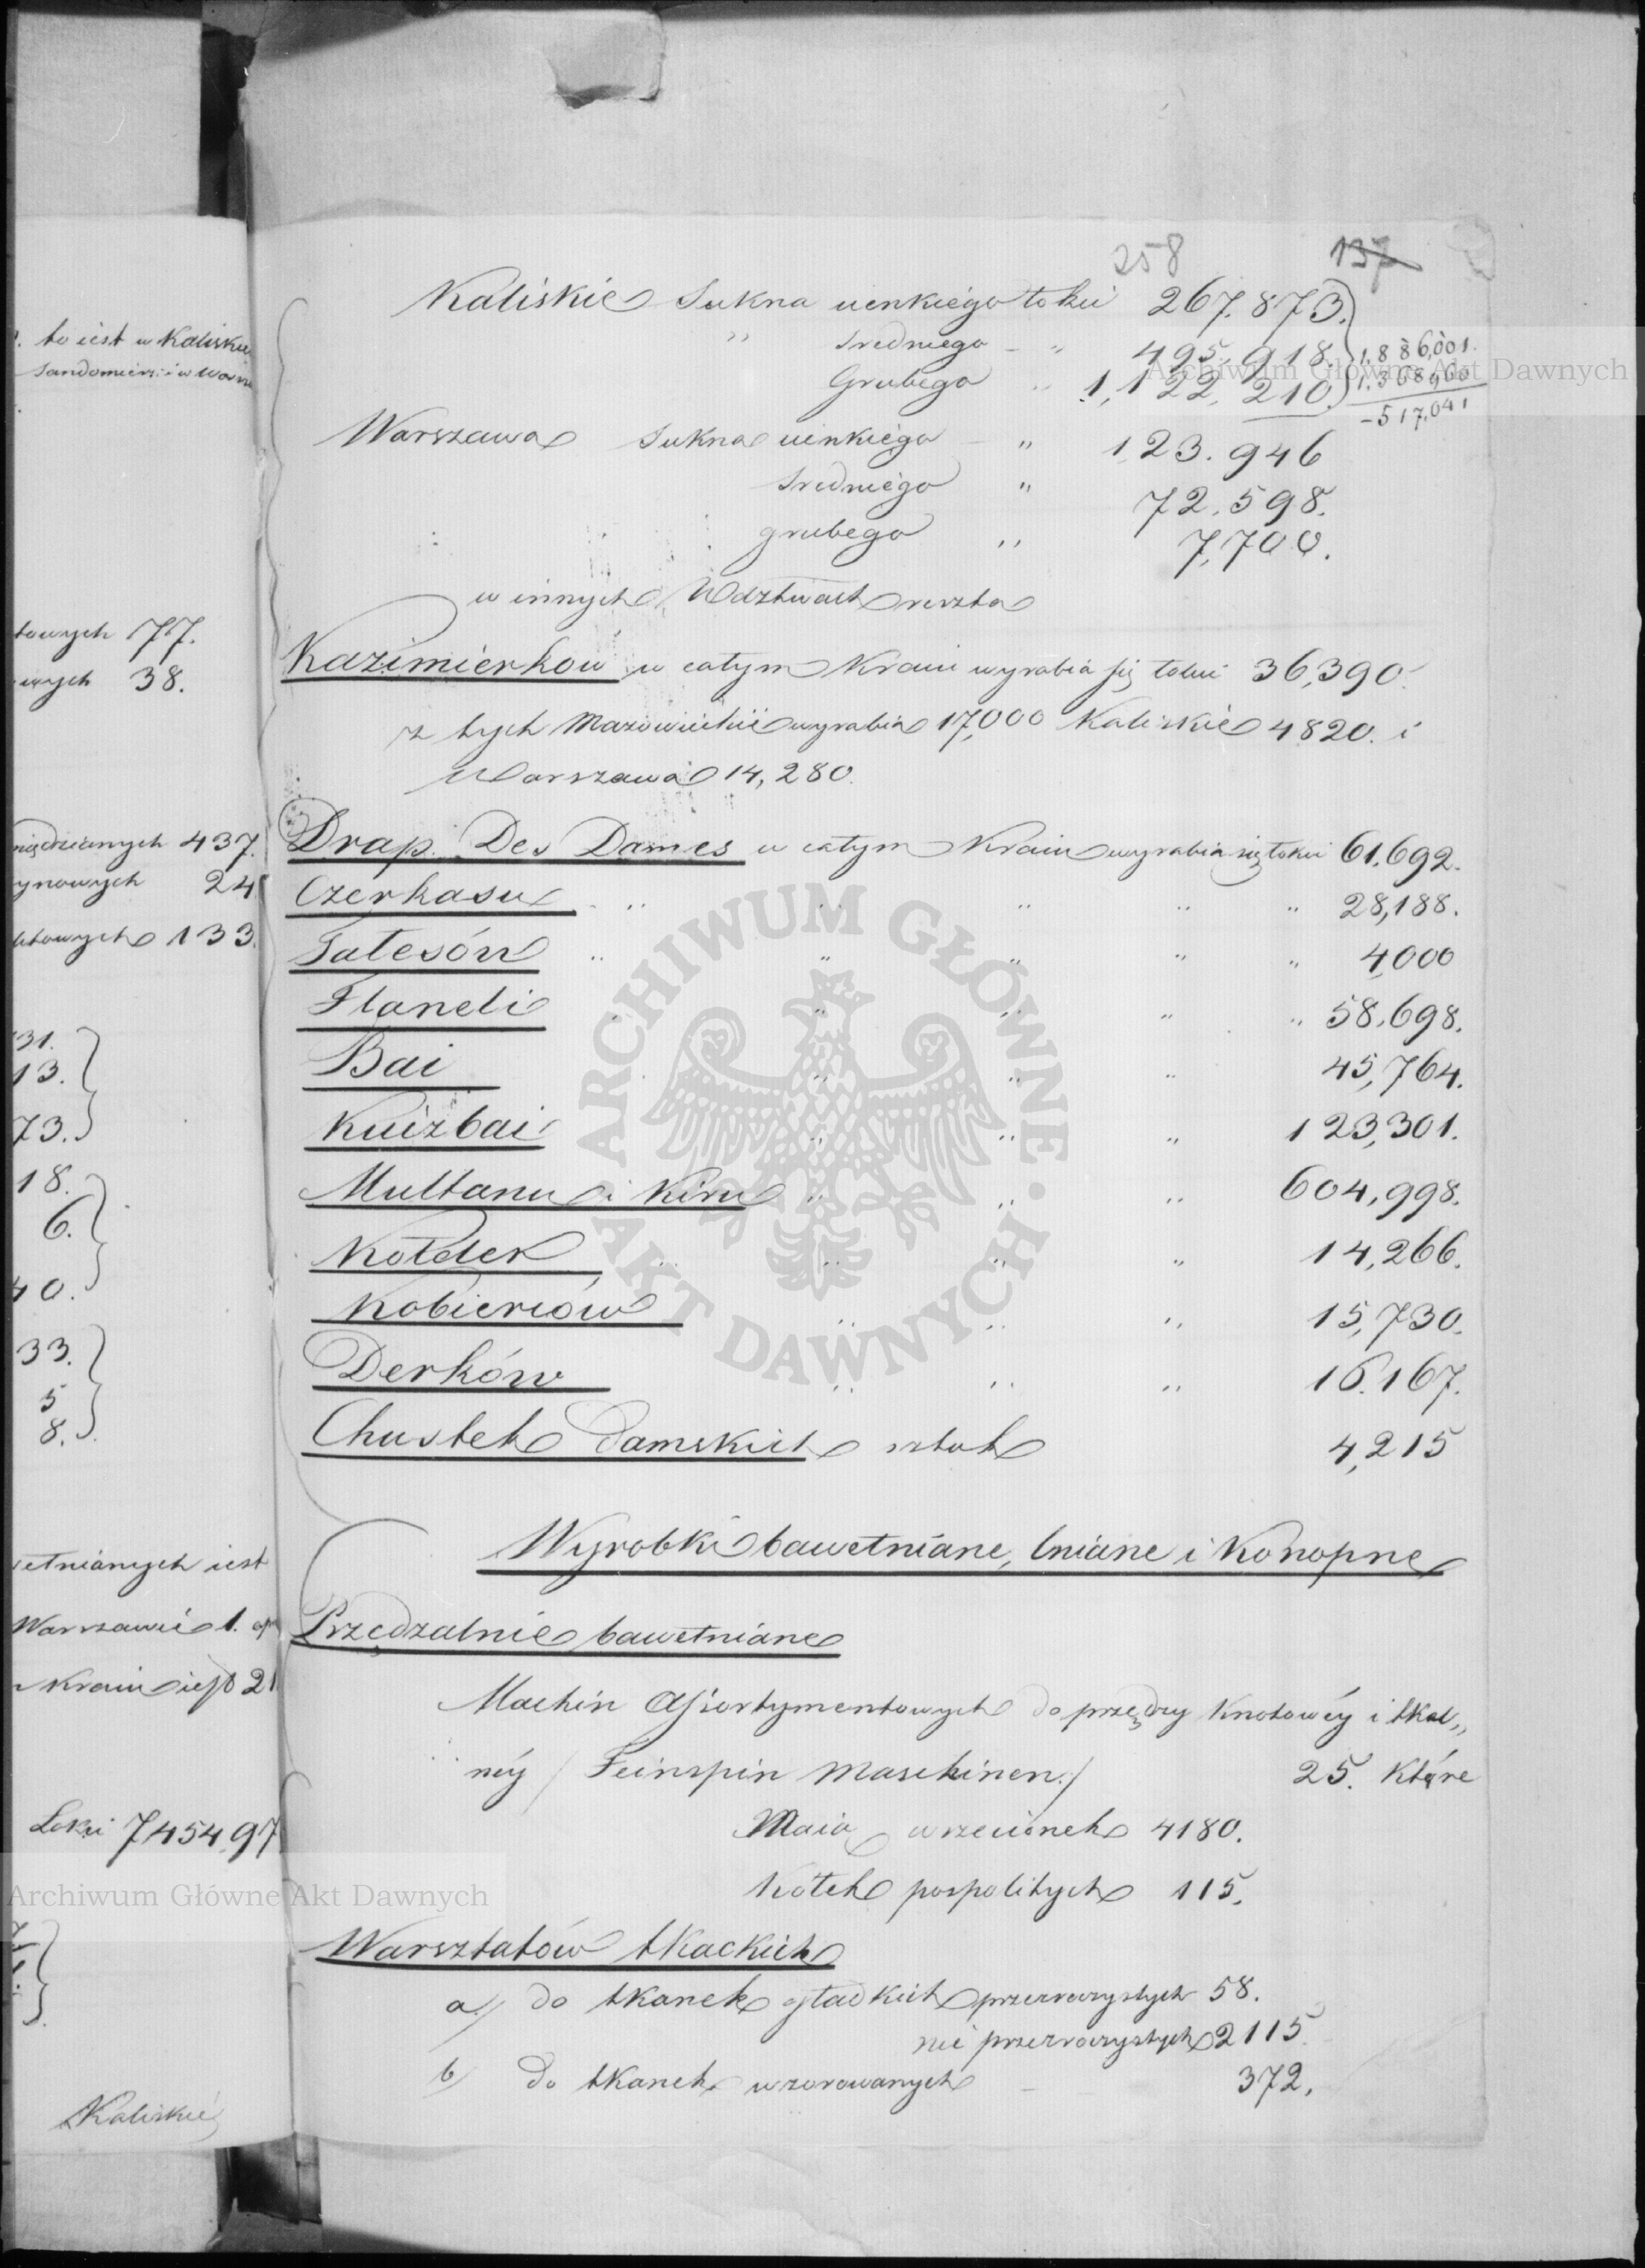 258 137
Kaliskie Sukna cienkiego łokci 267,873.
" Sredniego - " 495,918. 1,886,001.
Grubego " 1,122,210. 1,368,960
-517,041
Warszawa Sukna cienkiego - " 123.946
Sredniego " 72.598.
grubego " 7,700.
w innych Wdztwach reszta
Kazimierkow w całym Kraiu wyrabia się łokci 36,390.
z tych Mazowieckie wyrabia 17,000 Kaliskie 4820. i
Warszawa 14,280.
Drap. Des Dames w całym Kraiu wyrabia się łokci 61,692.
Czerkasu " " " " " 28,188.
Talesów " " " " " 4,000
Flaneli " " " " " 58,698.
Bai " " " 45,764.
Kuizbai " " " 123,301.
Multanu i Kiru " " " 604,998.
Kołder " " " " 14,266.
Kobierców " " " 15,730.
Derków " " " 16.167.
Chustek Damskich sztuk 4,215
Wyrobki bawełniane, lniane i Konopne
Przędzalnie bawełniane
Machin assortymentowych do przędzy Knotowéy i tkal„
néy / Feinspin Maschinen / 25. Które
Maią wrzecionek 4180.
Kółek pospolitych 115.
Warsztatów tkackich
a/ do tkanek gładkich przezroczystych 58.
nie przezroczystych 2115.
b/ do tkanek wzorowanych - 372.
to iest w Kaliskie
Sandomiers: i w Warsz
towych 77.
38.
437.
24
133.
31.
13.
73.
18.
6.
40.
33.
5
8.
ełnianych iest
Warszawie 1.
Kraiu iest 21
Łokci 745497
Kaliskie
Archiwum Główne Akt Dawnych
Archiwum Główne Akt Dawnych
ARCHIWUM GŁÓWNE · AKT DAWNYCH ·